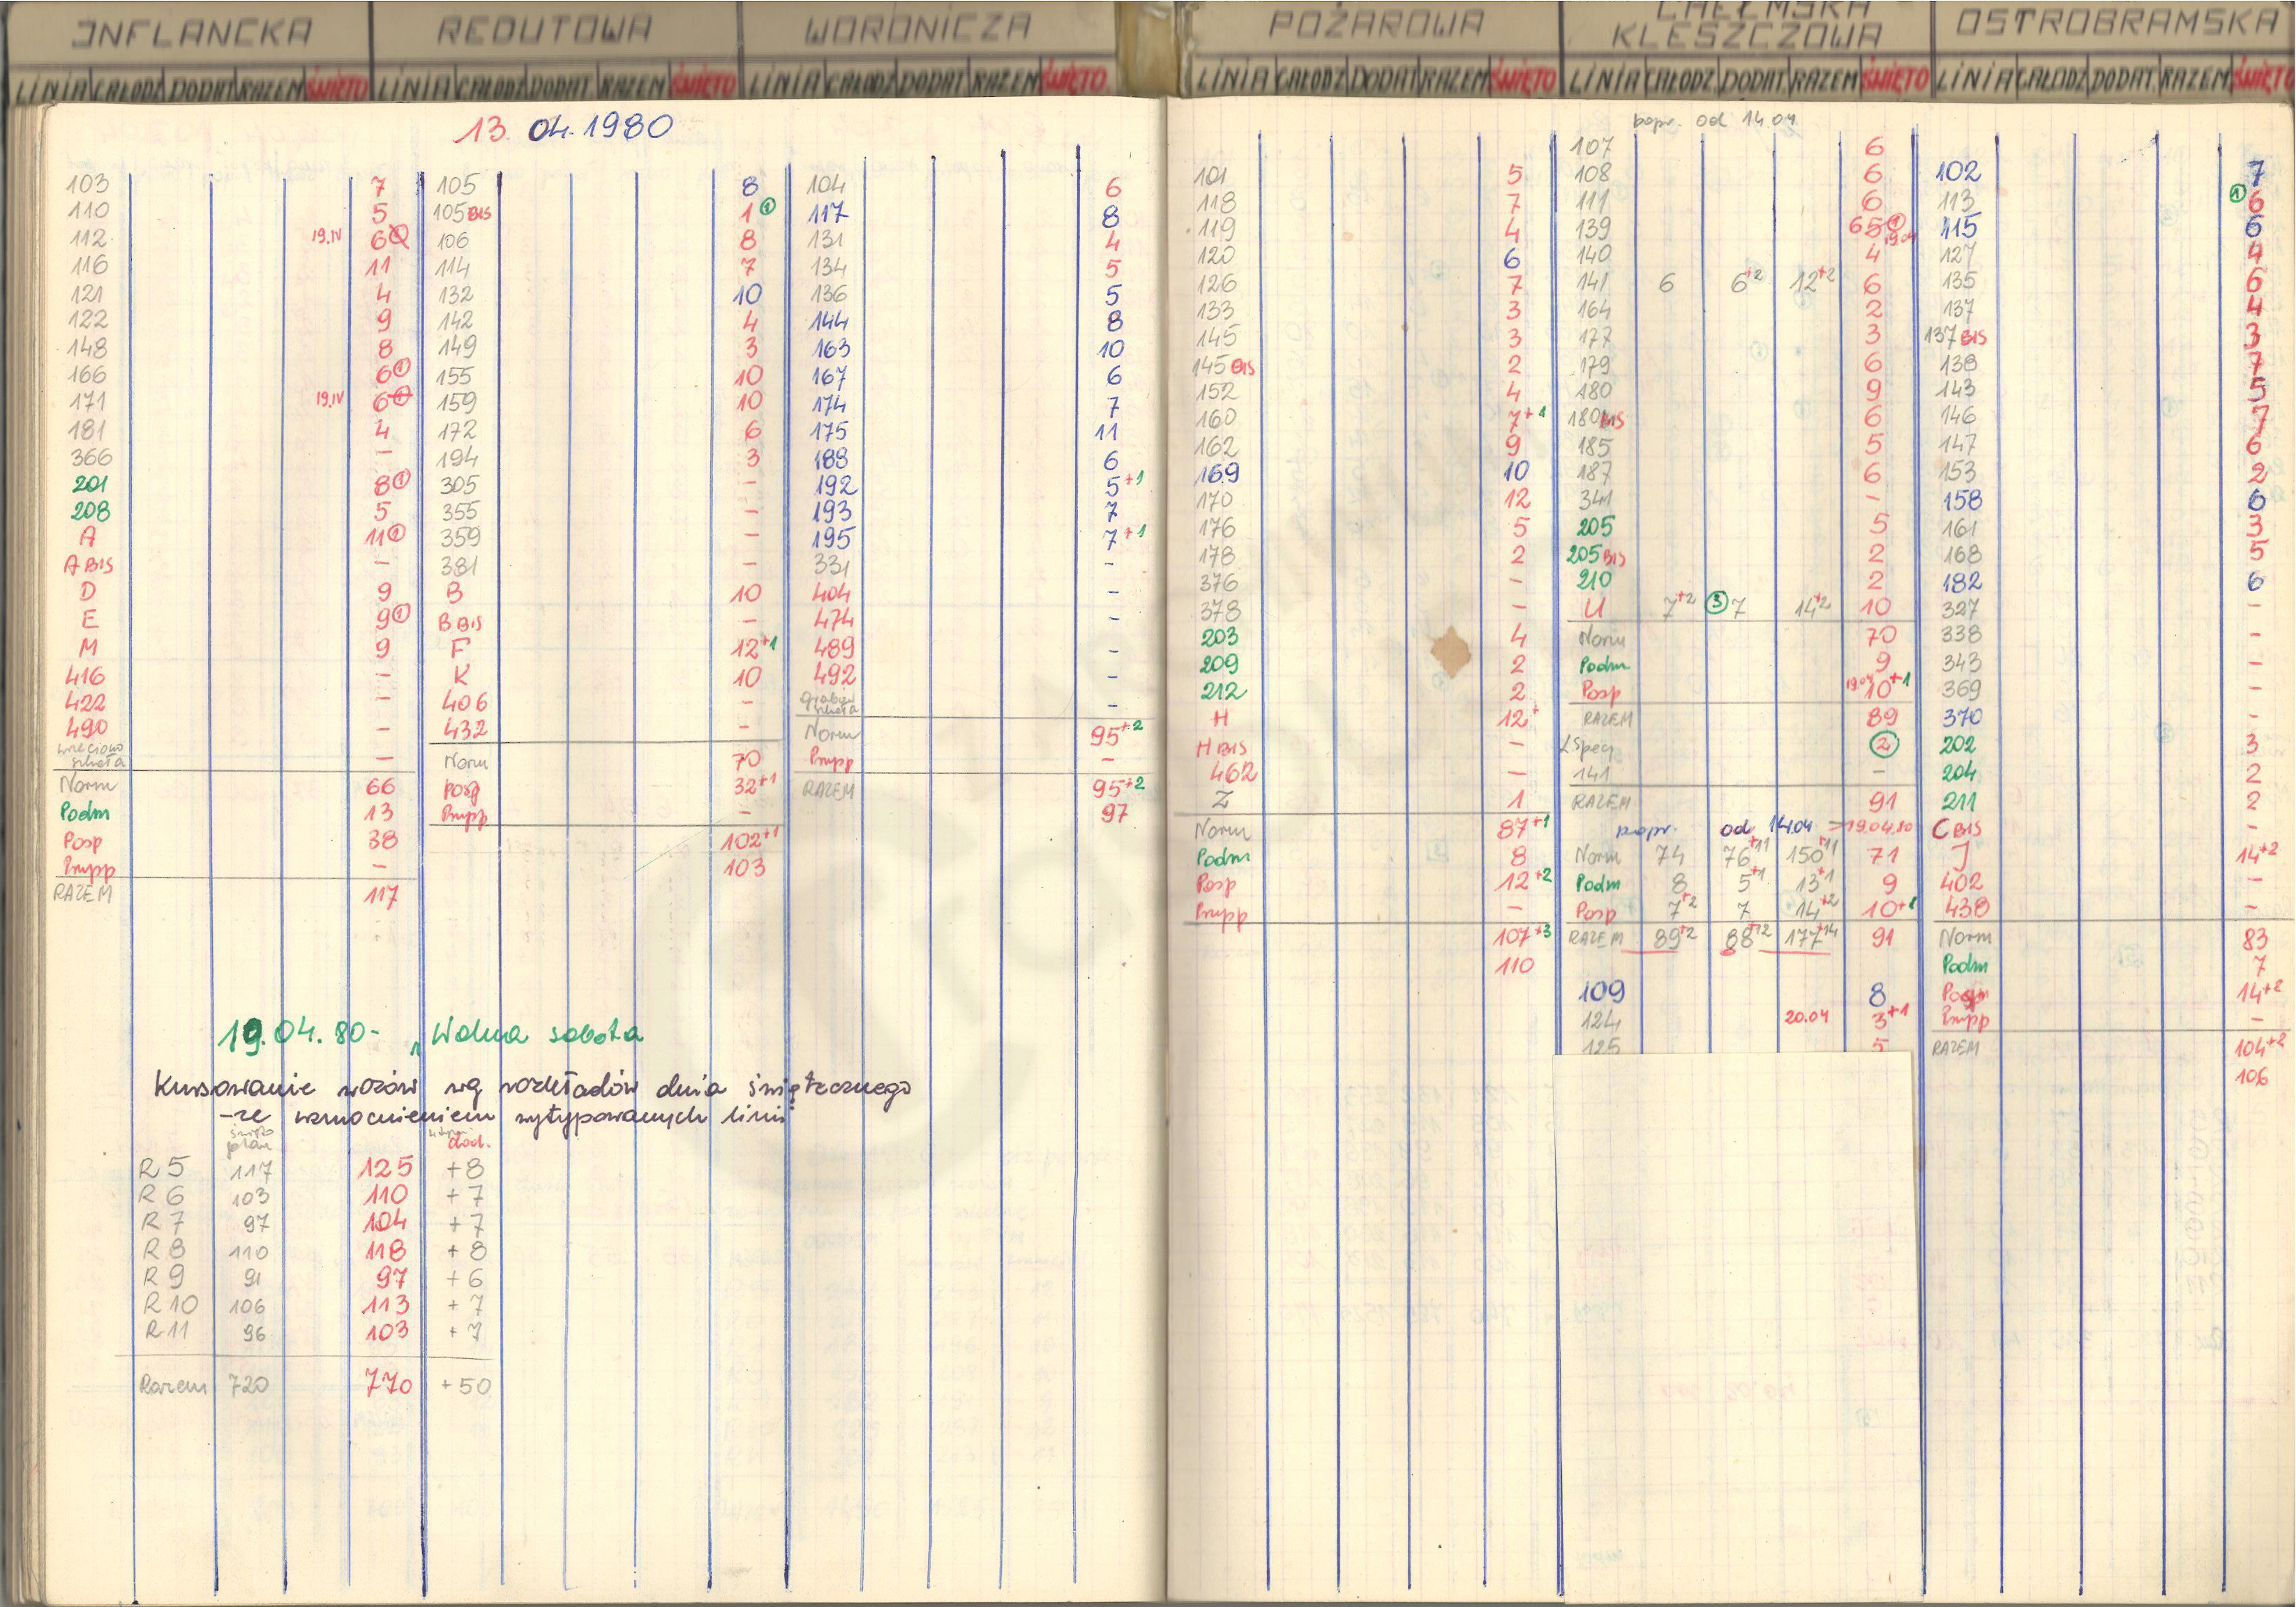 INFLANCKA
LINIA CAŁODZ DODAT RAZEM ŚWIĘTO
13.04.1980
103 7
110 5
112 19.IV 6
116 11
121 4
122 9
148 8
166 6 1
171 19.IV 6
181 4
366 -
201 8 1
208 5
A 11 1
A BIS -
D 9
E 9 1
M 9
416 -
422 -
490 -
szkoła -
Norm 66
Podm 13
Posp 38
Pospp -
RAZEM 117
REDUTOWA
LINIA CAŁODZ DODAT RAZEM ŚWIĘTO
105 8
105 BIS 1 1
106 8
114 7
132 10
142 4
149 3
155 10
159 10
172 6
194 3
305 -
355 -
359 -
381 -
B 10
B BIS -
F 12+1
K 10
406 -
432 -
Norm 70
posp 32+1
-
102+1
103
WORONICZA
LINIA CAŁODZ DODAT RAZEM ŚWIĘTO
104 6
117 8
131 4
134 5
136 5
144 8
163 10
167 6
174 7
175 11
188 6
192 5+1
193 7
195 7+1
331 -
404 -
474 -
489 -
492 -
szkoła -
Norm 95+2
-
RAZEM 95+2
97
19.04.80- „Wolna sobota
Kursowanie wozów wg rozkładów dnia świątecznego
-ze wzmocnieniem wytypowanych linii
święto
plan dod.
R 5 117 125 +8
R 6 103 110 +7
R 7 97 104 +7
R 8 110 118 +8
R 9 91 97 +6
R 10 106 113 +7
R 11 96 103 +7
Razem 720 770 +50
POŻAROWA
LINIA CAŁODZ DODAT RAZEM ŚWIĘTO
101 5
118 7
119 4
120 6
126 7
133 3
145 3
145 BIS 2
152 4
160 7+1
162 9
169 10
170 12
176 5
178 2
376 -
378 -
203 4
209 2
212 2
H 12+
H BIS -
462 -
Z 1
Norm 87+1
Podm 8
Posp 12+2
-
107+3
110
CHEŁMSKA
KLESZCZOWA
LINIA CAŁODZ DODAT RAZEM ŚWIĘTO
popr. od 14.04
107 6
108 6
111 6
139 6 5 1 19.04
140 4
141 6 6+2 12+2 6
164 2
177 3
179 6
180 9
180 BIS 6
185 5
187 6
341 -
205 5
205 BIS 2
210 2
U 7+2 3 7 14+2 10
Norm 70
Podm 9
Posp 19.04 10+1
RAZEM 89
2
141 -
RAZEM 91
popr. od 14.04 19.04.80
Norm 74 76+11 150+11 71
Podm 8 5+1 13+1 9
Posp 7+2 7 14+2 10+1
RAZEM 89+2 88+12 177+14 91
109 8
124 20.04 3+1
125 5
OSTROBRAMSKA
LINIA CAŁODZ DODAT RAZEM ŚWIĘTO
102 7
113 1 6
115 6
127 4
135 6
137 4
137 BIS 3
138 7
143 5
146 7
147 6
153 2
158 6
161 3
168 5
182 6
327 -
338 -
343 -
369 -
370 -
202 3
204 2
211 2
C BIS -
J 14+2
402 -
438 -
Norm 83
Podm 7
Posp 14+2
-
RAZEM 104+2
106